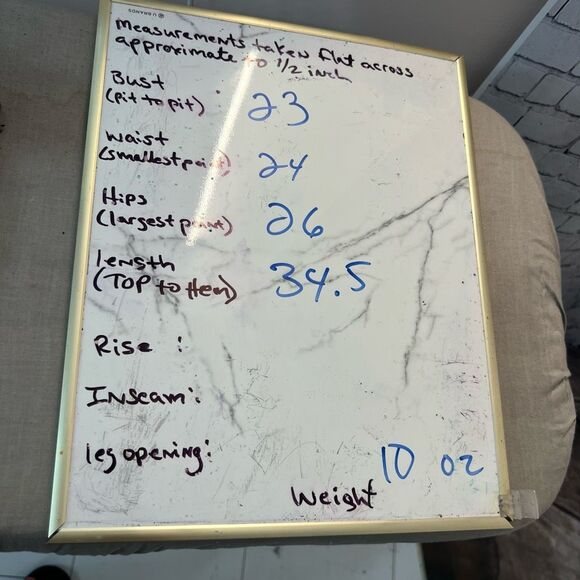 U BRANDS
Measurements taken flat across
approximate to 1/2 inch
Bust
(pit to pit) 23
waist
(smallest point) 24
Hips
(largest point) 26
length
(TOP to Hem) 34.5
Rise :
Inseam:
leg opening:
10 oz
Weight